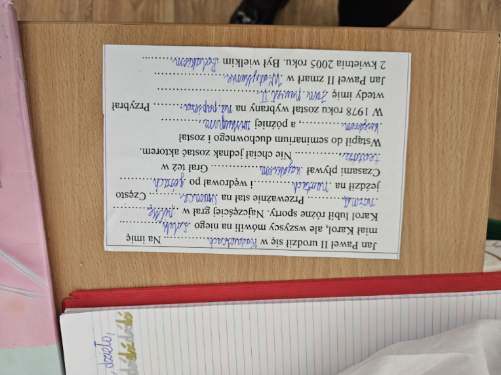 Jan Paweł II urodził się w Wadowicach. Na imię
miał Karol, ale wszyscy mówili na niego Lolek.
Karol lubił różne sporty. Najczęściej grał w piłkę
nożną. Przeważnie stał na bramce. Często
jeździł na nartach i wędrował po górach.
Czasami pływał kajakiem. Grał też w
teatrze. Nie chciał jednak zostać aktorem.
Wstąpił do seminarium duchownego i został
księdzem, a później
W 1978 roku został wybrany na papieża. Przybrał
wtedy imię Jan Paweł II.
Jan Paweł II zmarł w Watykanie
2 kwietnia 2005 roku. Był wielkim Polakiem.